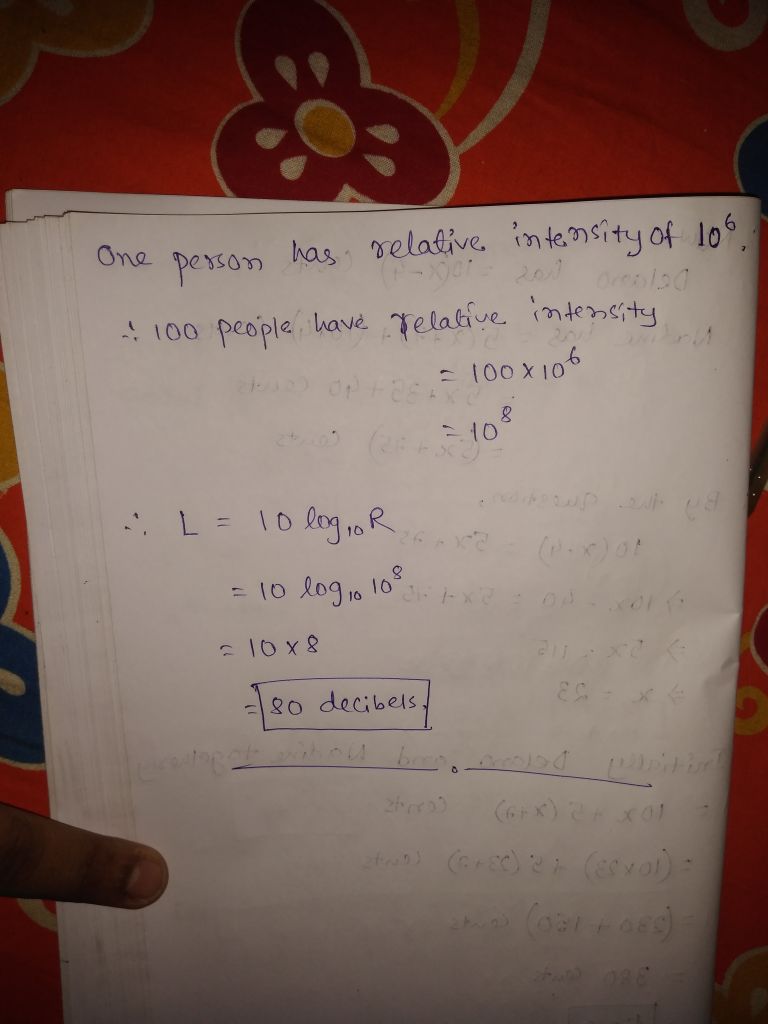 One person has relative intensity of 10⁶.
∴ 100 people have relative intensity
= 100 x 10⁶
= 10⁸
∴ L = 10 log₁₀ R
= 10 log₁₀ 10⁸
= 10 x 8
= 80 decibels.